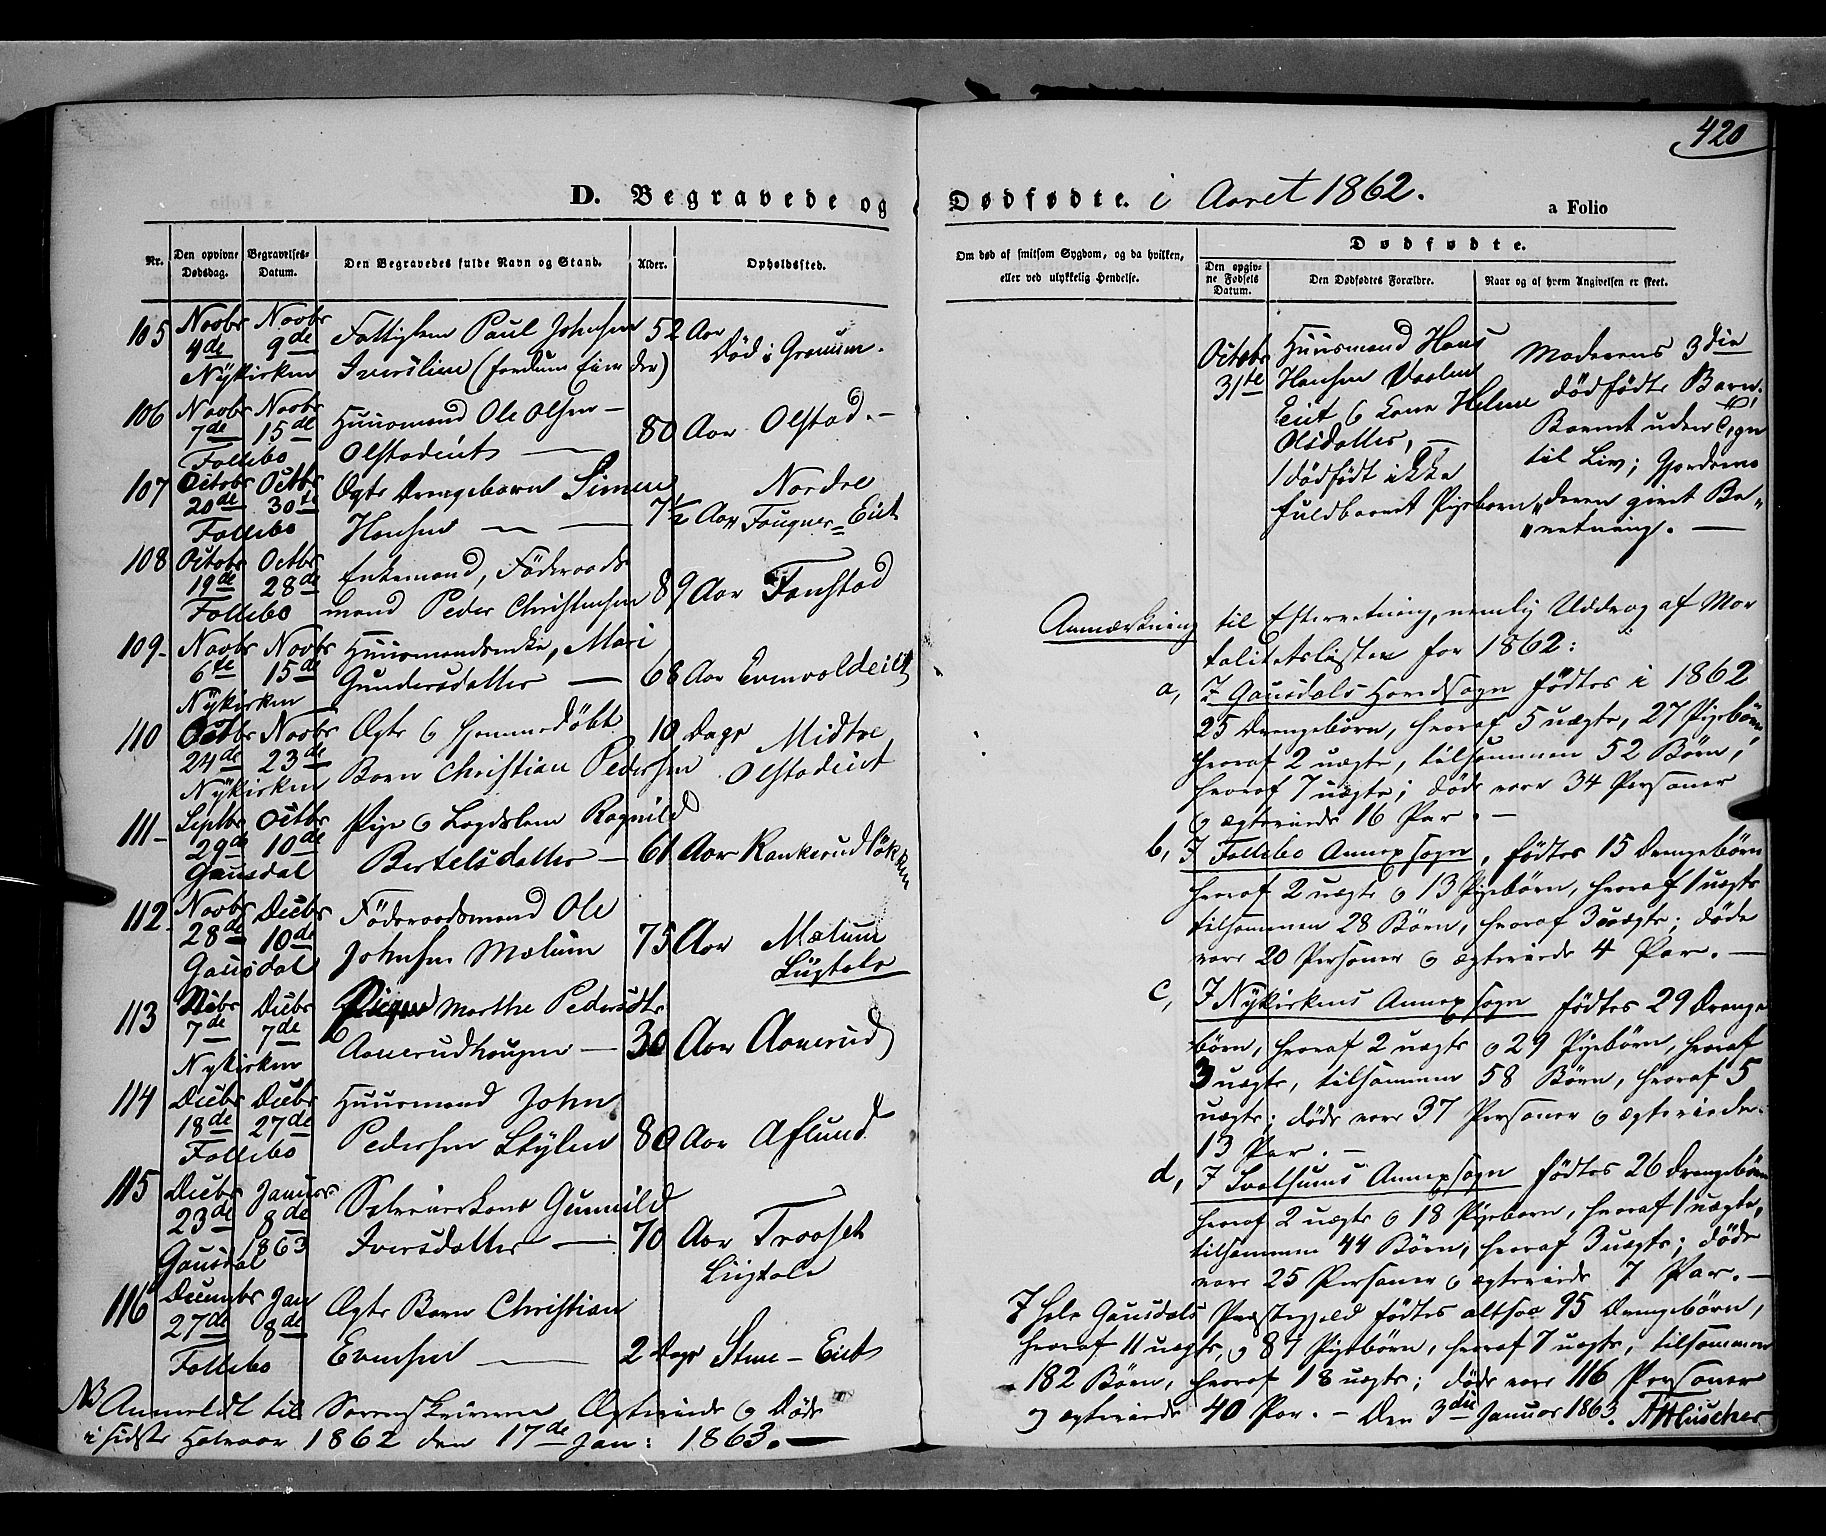 420
D. Begravede og Dødfødte. i Aaret 1862.
a Folio
Nr.
Den opgivne Dødsdag.
Begravelses-Datum.
Den Begravedes fulde Navn og Stand.
Alder.
Opholdssted.
Om død af smitsom Sygdom, og da hvilken,
eller ved ulykkelig Hendelse.
Dødfødte.
Den opgivne Fødsels Datum.
Den Dødfødtes Forældre.
Naar og af hvem Angivelsen er skeet.
105 Novbr Novbr Fattiglem Paul Johnsen 52 Aar
4de 9de Død i Granum.
Nykirken Iverslien (fordum Eier der)
106 Novbr Novbr Huusmand Ole Olsen –
7de 15de 80 Aar Olstad. –
Follebo Olstadeiet —
107 Octobr Octbr Ægte Drengebarn Simen Nordre
20de 30te 7½ Aar Fougner-Eiet
Follebo Hansen — —
108 Octobr Octbr Enkemand, Föderaads
19de 28de 89 Aar Fonstad
Follebo mand Peder Christensen
109- Novbr Novbr Huusmandsenke, Mari
6te 15de Gundersdatter — 68 Aar Evenvoldeiet
Nykirken
110 Octbr Novbr Ægte & hjemmedöbt 10 Dage Midtre
24de 23de Barn Christian Pedersen Olstadeiet
Nykirken
111- Septbr Octbr Pige & Lægdslem Ragnild
29de 10de Bertelsdatter – 61 Aar Kankerudløkken
Gausdal
112- Novbr Decbr Föderaadsmand Ole
28de 10de Johnsen Mælum 75 Aar Mælum
Gausdal Ligtale
113 Decbr Decbr Pigen Marthe Pedersdtr
7de 7de Aanerudhaugen — 30 Aar Aanerud
Nykirken
114 Decbr Decbr Huusmand John
18de 27de Pedersen Stylen 80 Aar Aflund
Follebo
115 Decbr Januar Selveierkone Gunnild
23de 8de Iversdatter — 70 Aar Traaset
Gausdal 1863 Ligtale
116 Decembr Jan Ægte Barn Christian
27de 8de Evensen — 2 Dage Steene – Eiet
Follebo
NB Anmeldt til Sorenskriveren Ægteviede & Døde
i sidste Halvaar 1862 den 17de Jan: 1863. —
Octobr Huusmand Hans
31te Hansen
Eiet & Kone Helene
Olsdatter, —
1 dødfødt ikke
fuldbaaret Pigebarn
Moderens 3die
dødfødte Barn;
Barnet uden Tegn
til Liv; Gjordemo
„deren givet Be„
„retning. —
Anmærkning til Efterretning, nemlig Uddrag af Mor
talitetslisten for 1862:
a, I Gausdals Hovedsogn fødtes i 1862
25 Drengebörn, hvoraf 5 uægte, 27 Pigebörn
hvoraf 2 uægte, tilsammen 52 Børn,
hvoraf 7 uægte; døde vare 34 Personer
& ægteviede 16 Par. –
b, I Follebo Annexsogn, fødtes 15 Drengebörn
hvoraf 2 uægte & 13 Pigebörn, hvoraf 1 uægte
tilsammen 28 Børn, hvoraf 3 uægte; døde
vare 20 Personer & ægteviede 4 Par. —
c, I Nykirkens Annexsogn fødtes 29 Drenge
børn, hvoraf 2 uægte & 29 Pigebörn, hvoraf
3 uægte, tilsammen 58 Børn, hvoraf 5
uægte; døde vare 37 Personer & ægteviede
13 Par. –
d, I Svatsums Annexsogn fødtes 26 Drengebörn
hvoraf 2 uægte & 18 Pigebørn, hvoraf 1 uægte,
tilsammen 44 Børn, hvoraf 3 uægte; døde
vare 25 Personer & ægteviede 7 Par. –
I hele Gausdals Præstegjeld fødtes altsaa 95 Drengebörn,
hvoraf 11 uægte, & 87 Pigebörn, hvoraf 7 uægte, tilsammen
182 Børn, hvoraf 18 uægte; døde vare 116 Personer
og ægteviede 40 Par. – Den 3die Januar 1863.